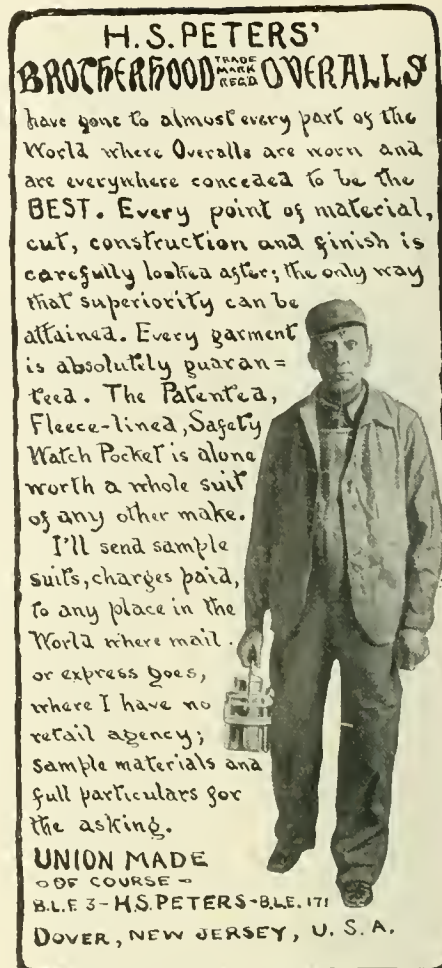 H.S. PETERS'
BROTHERHOOD TRADE MARK REG'D. OVERALLS
have gone to almost every part of the
World where Overalls are worn and
are everywhere conceded to be the
BEST. Every point of material,
cut, construction and finish is
carefully looked after; the only way
that superiority can be
attained. Every garment
is absolutely guaran=
teed. The Patented,
Fleece-lined, Safety
Watch Pocket is alone
worth a whole suit
of any other make.
I'll send sample
suits, charges paid,
to any place in the
World where mail
or express goes,
where I have no
retail agency;
sample materials and
full particulars for
the asking.
UNION MADE
-OF COURSE-
B.L.F. 3-H.S. PETERS-B.L.E. 171
DOVER, NEW JERSEY, U.S.A.